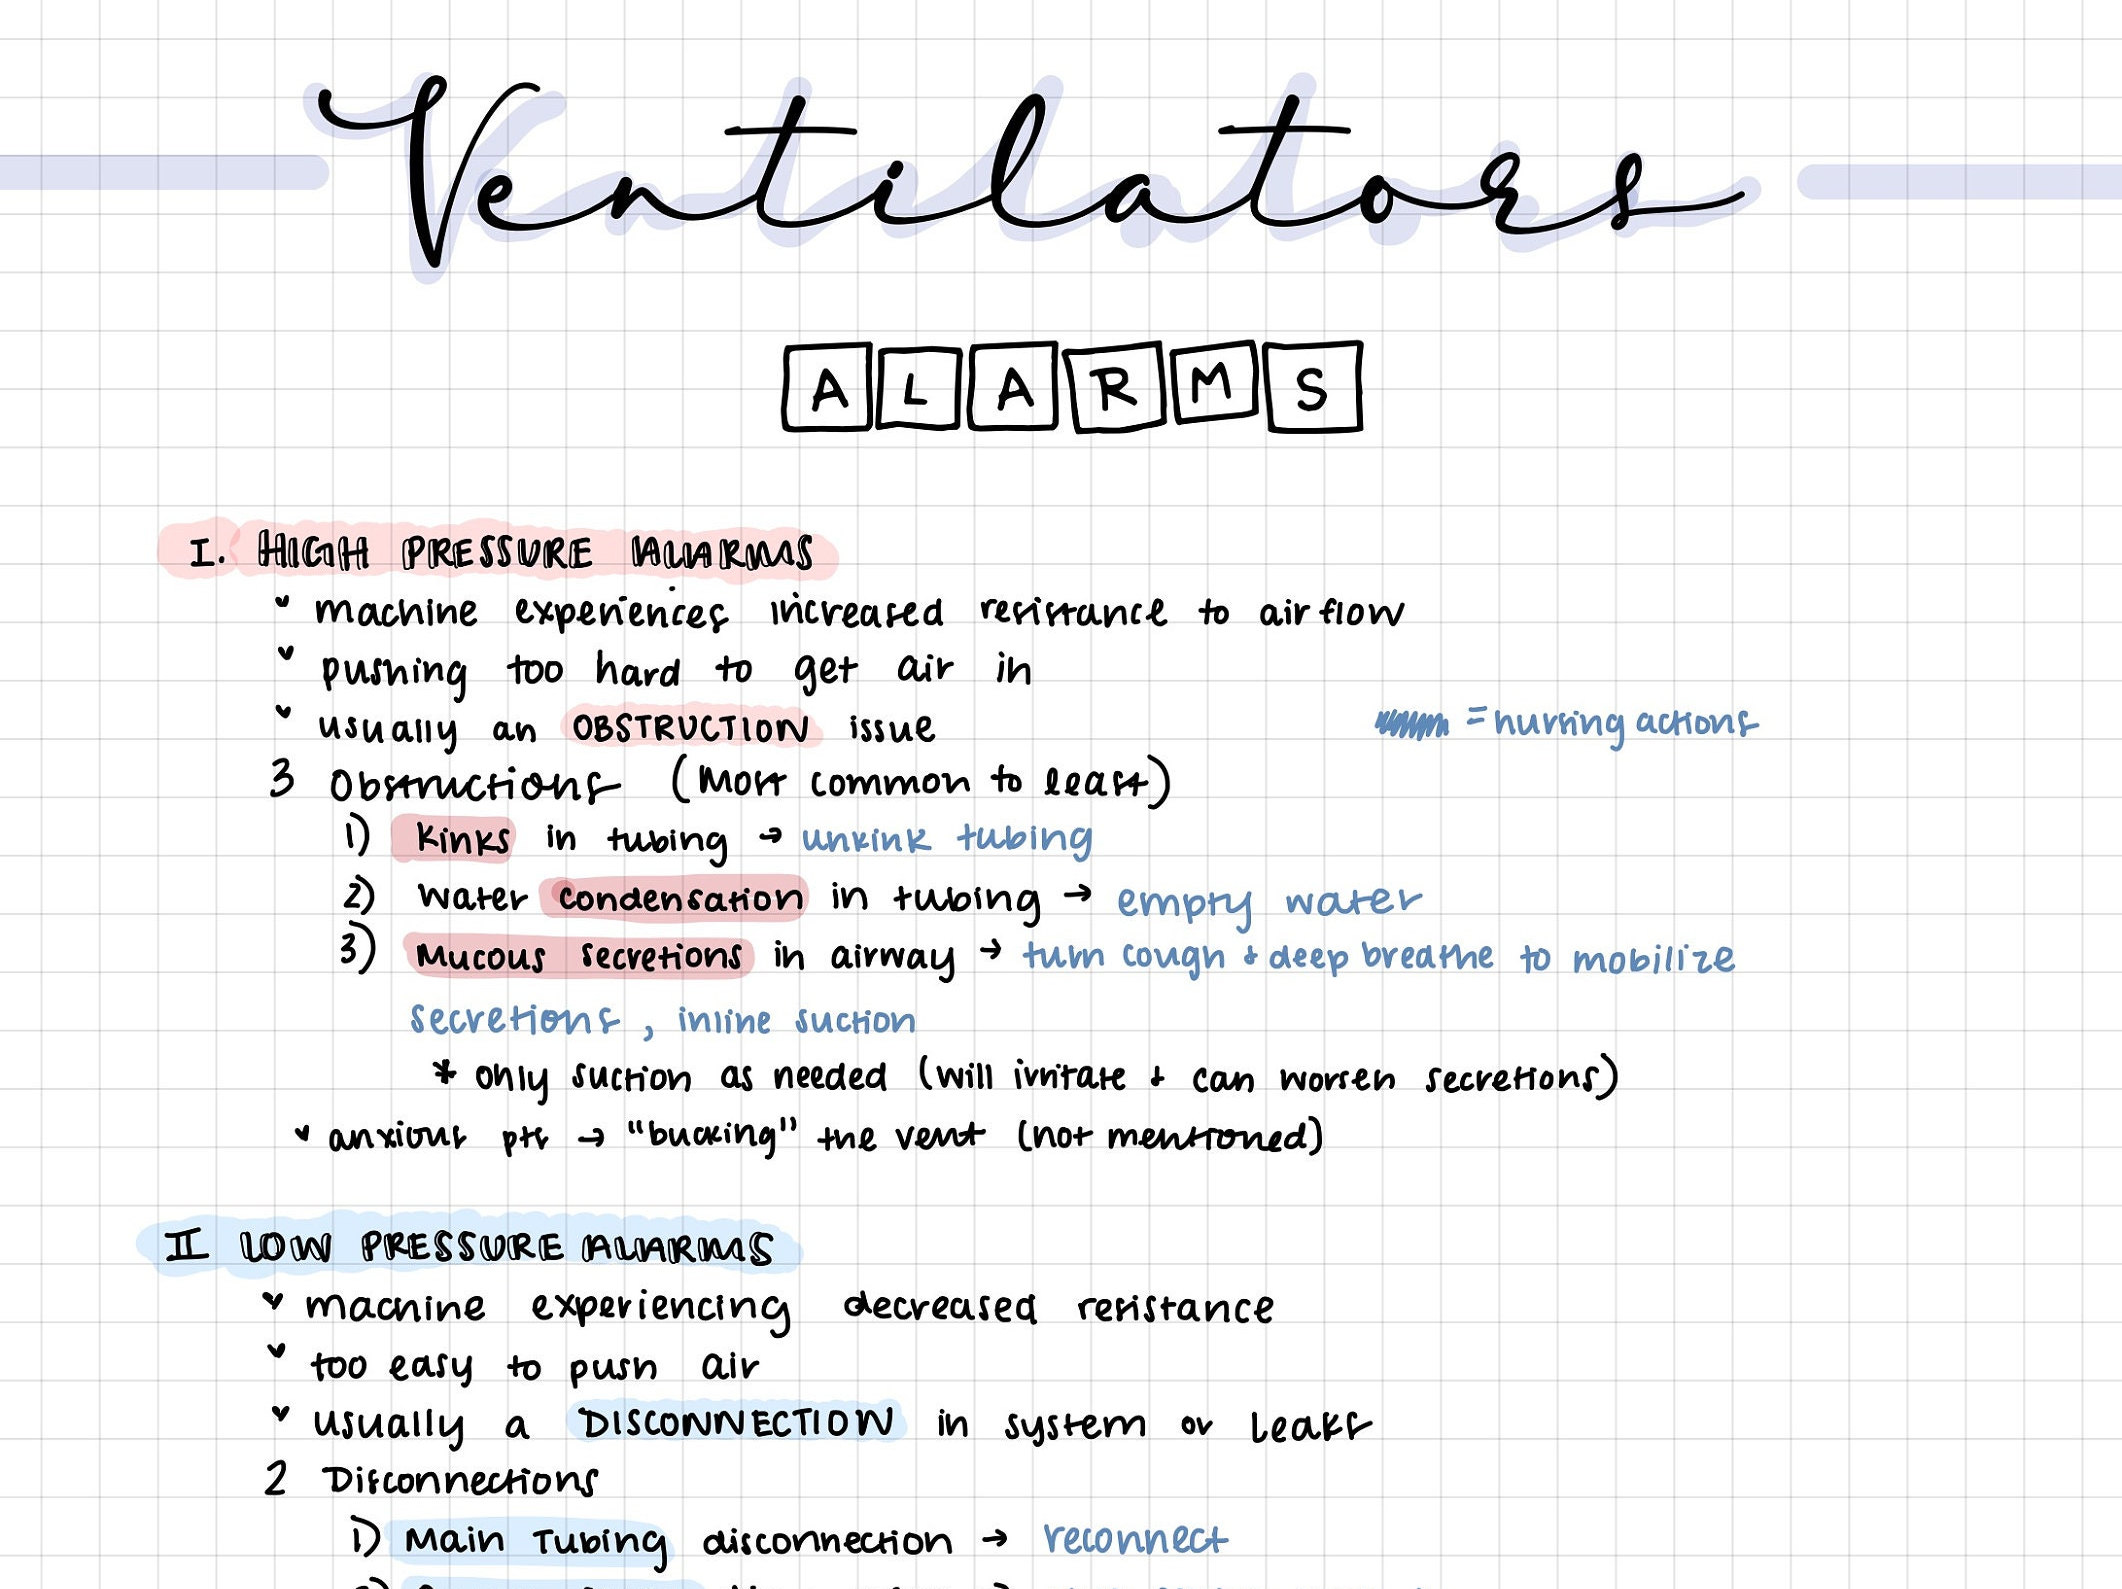 Ventilators
ALARMS
I. HIGH PRESSURE ALARMS
machine experiences increased resistance to airflow
pushing too hard to get air in
usually an OBSTRUCTION issue
= nursing actions
3 Obstructions (Most common to least)
1) Kinks in tubing → unkink tubing
2) Water condensation in tubing → empty water
3) Mucous secretions in airway → turn cough + deep breathe to mobilize
secretions, inline suction
* only suction as needed (will irritate + can worsen secretions)
anxious pts → "bucking" the vent (not mentioned)
II LOW PRESSURE ALARMS
machine experiencing decreased resistance
too easy to push air
usually a DISCONNECTION in system or leaks
2 Disconnections
1) Main Tubing disconnection → reconnect